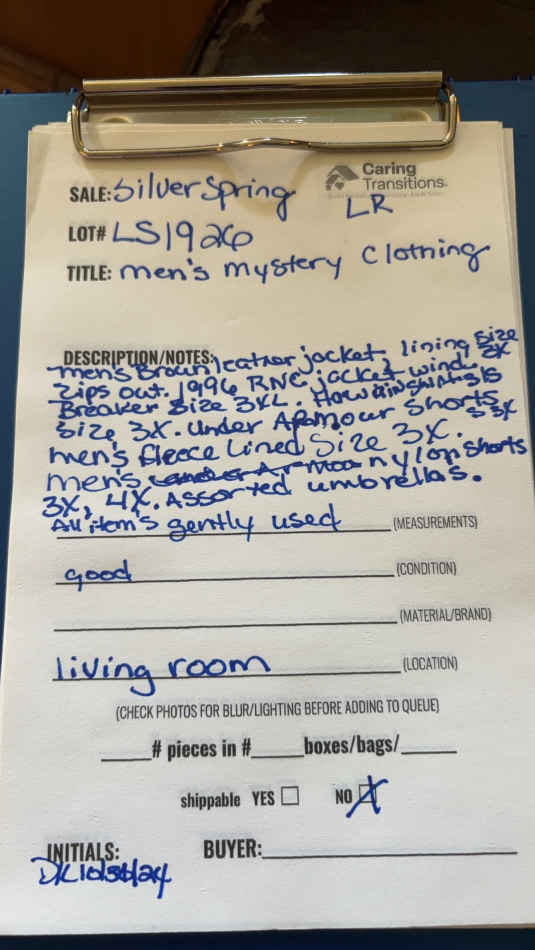 Caring
Transitions
SALE: Silver Spring
LR
LOT# LS1926
TITLE: men's mystery Clothing
DESCRIPTION/NOTES:
men's Brown leather jacket, lining size
Zips out. 1996 RNC jacket wind 2X
Breaker Size 3XL.
Size 3X. Under Armour Shorts
men's fleece Lined Size 3X. 5 3X
men's nylon shorts
3X, 4X. Assorted umbrellas.
All item's gently used (MEASUREMENTS)
good (CONDITION)
(MATERIAL/BRAND)
living room (LOCATION)
(CHECK PHOTOS FOR BLUR/LIGHTING BEFORE ADDING TO QUEUE)
# pieces in # boxes/bags/
shippable YES NO X
INITIALS: BUYER: